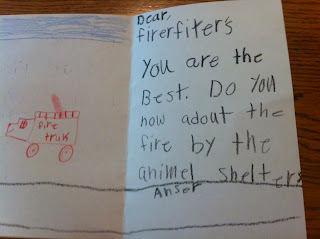 fire
truk
Dear,
firerfiters
You are the
Best. Do You
now adout the
fire by the
animel shelters
Anser